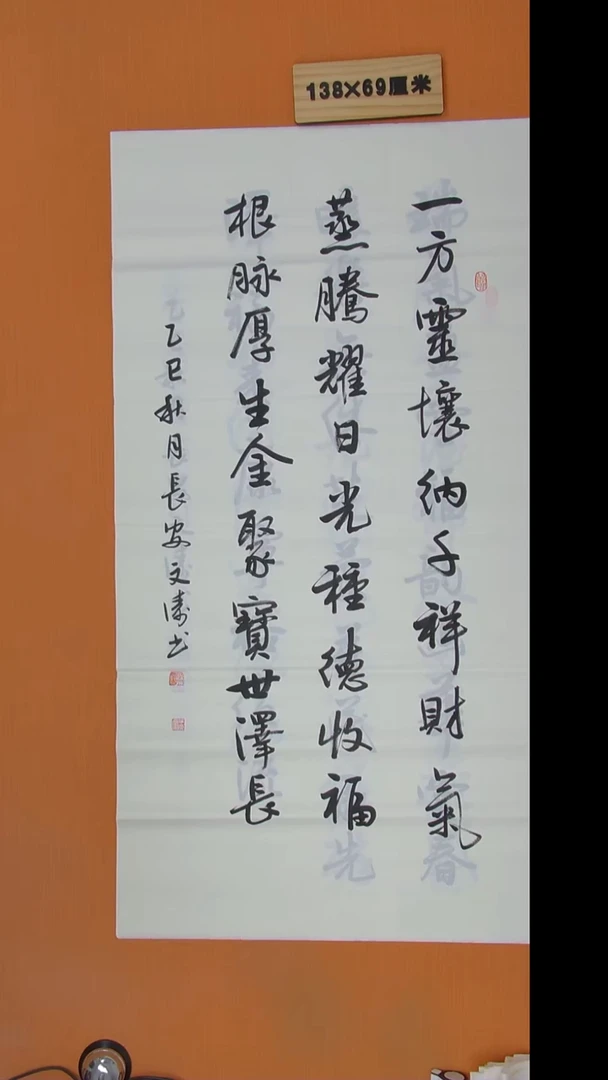 138×69厘米
一方靈壤納千祥財氣
蒸騰耀日光種德收福
根脉厚生金聚寶世澤長
乙巳秋月長安文濤书